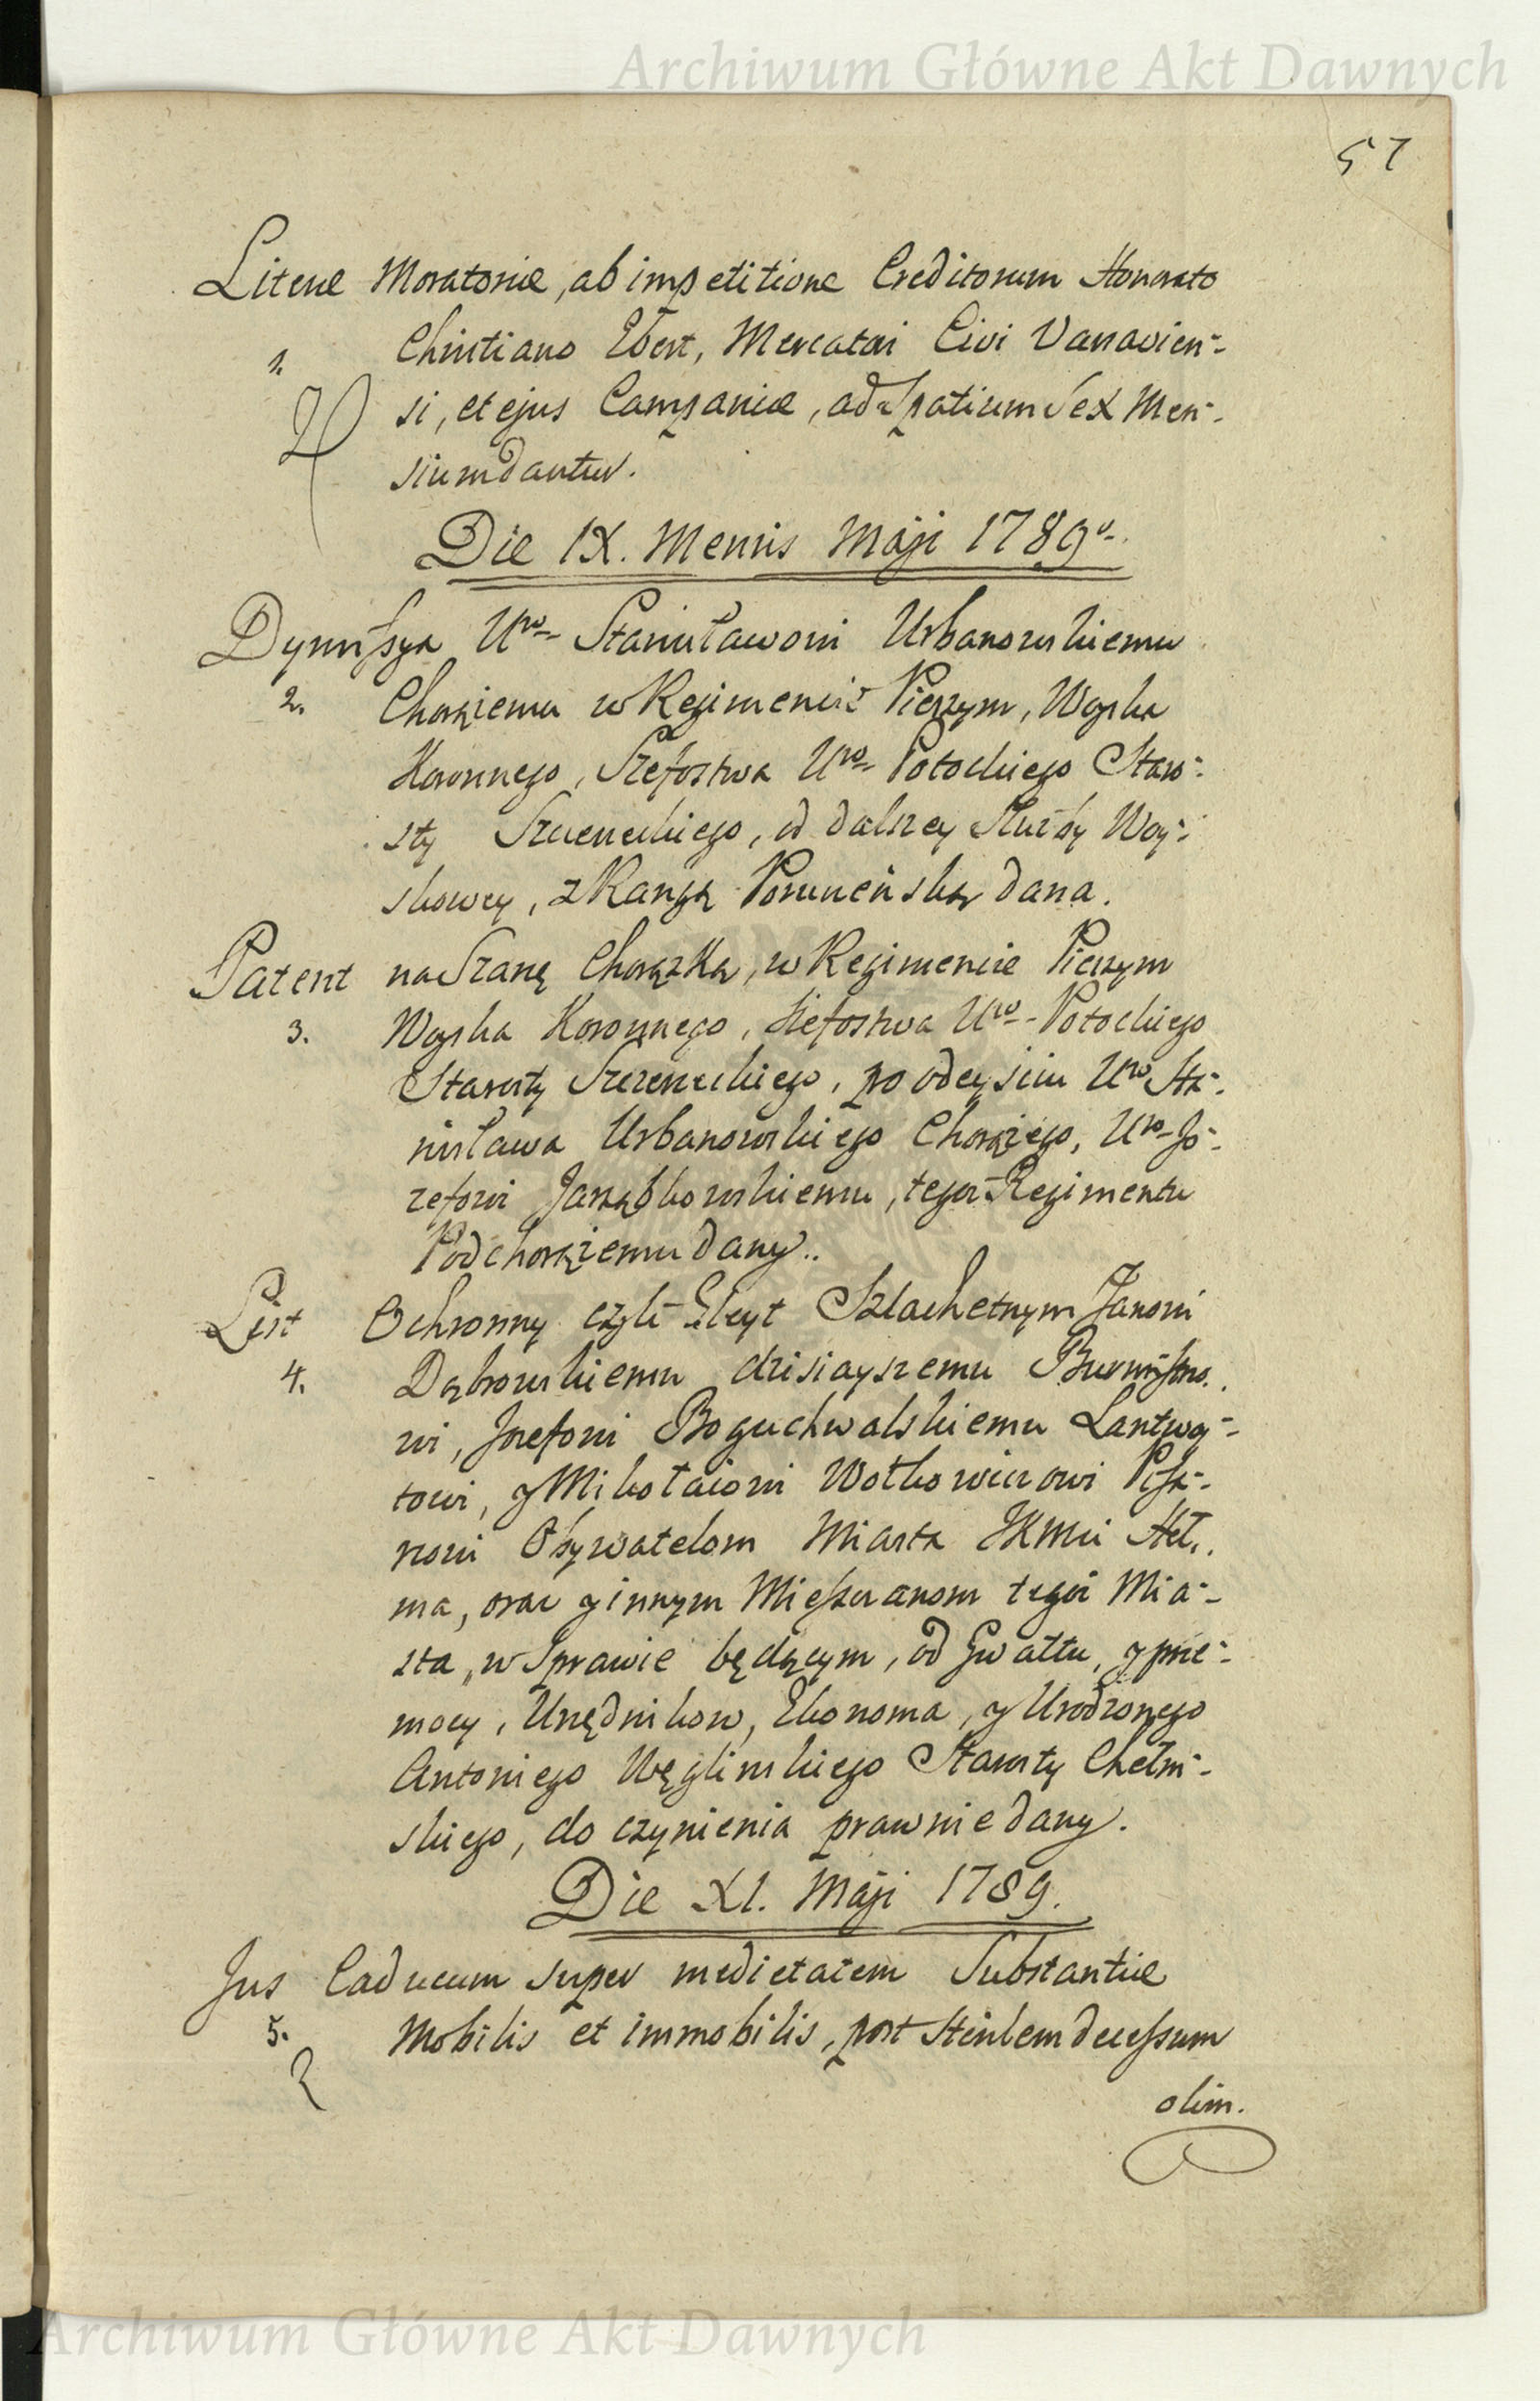 Archiwum Główne Akt Dawnych
57
Literæ Moratoriæ, ab impetitione Creditorum Honorato
1. Christiano Ebert, Mercatori Civi Varsavien-
si, et ejus Campaniæ, ad Spatium Sex Men-
sium dantur.
Die IX. Mensis Maji 1789o.
Dymissya Uro Stanisławowi Urbanowskiemu
2. Chorążemu w Regimencie Pieszym, Woyska
Koronnego, Szefostwa Uro Potockiego Staro-
sty Szczereckiego, od dalszey Służby Woy-
skowey, z Rangą Poruczeńską dana.
Patent na Szarżę Chorążką, w Regimencie Pieszym
3. Woyska Koronnego, Szefostwa Uro Potockiego
Starosty Szczereckiego, po odeyściu Uro Sta-
nisława Urbanowskiego Chorążego, Uro Jó-
zefowi Jarząbkowskiemu, tegoż Regimentu
Podchorążemu dany.
List Ochronny czyli Gleyt Szlachetnym Janowi
4. Dąbrowskiemu dzisiayszemu Burmistrzo-
wi, Józefowi Boguchwalskiemu Lantwoy-
towi, y Mikołaiowi Wołkowiczowi Pisa-
rzowi Obywatelom Miasta JKMci Heł-
ma, oraz y innym Mieszczanom tegoż Mia-
sta, w Sprawie będącym, od Gwałtu, y prze-
mocy, Urzędnikow, Ekonoma, y Urodzonego
Antoniego Węglinskiego Starosty Chełm-
skiego, do czynienia prawnie dany.
Die XI. Maji 1789.
Jus Caducum super medietatem Substantiæ
5. Mobilis et immobilis, post sterilem decessum
olim.
Archiwum Główne Akt Dawnych